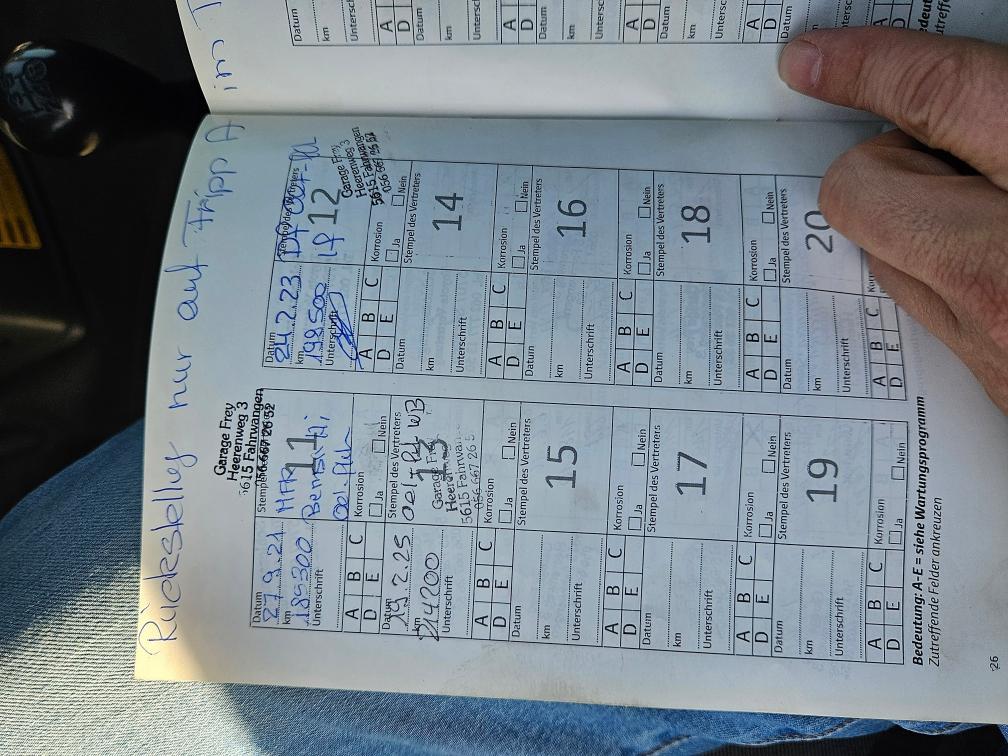 Rückstellung nur auf Tripp A in T
Garage Frey
Heerenweg 3
5615 Fahrwangen
056 667 26 52
Datum
27.9.21
km
185300
Unterschrift
11
A B C
D E
Korrosion
Ja Nein
Datum
24.2.23
Stempel des Vertreters
km
198500
Unterschrift
12
Garage Frey
Heerenweg 3
5615 Fahrwangen
056 667 26 52
A B C
D E
Korrosion
Ja Nein
Datum
19.2.25
Stempel des Vertreters
km
214200
Unterschrift
13
WB
Garage Frey
5615
A B C
D E
Korrosion
Ja Nein
Datum
Stempel des Vertreters
km
14
Unterschrift
A B C
D E
Korrosion
Ja Nein
Datum
Stempel des Vertreters
km
15
Unterschrift
A B C
D E
Korrosion
Ja Nein
Datum
Stempel des Vertreters
km
16
Unterschrift
A B C
D E
Korrosion
Ja Nein
Datum
Stempel des Vertreters
km
17
Unterschrift
A B C
D E
Korrosion
Ja Nein
Datum
Stempel des Vertreters
km
18
Unterschrift
A B C
D E
Korrosion
Ja Nein
Datum
Stempel des Vertreters
km
19
Unterschrift
A B C
D E
Korrosion
Ja Nein
Datum
Stempel des Vertreters
km
20
Unterschrift
A B C
D E
Bedeutung: A-E = siehe Wartungsprogramm
Zutreffende Felder ankreuzen
26
Datum
km
A
D
Datum
km
A
D
Datum
km
A
D
Datum
km
A
D
Datum